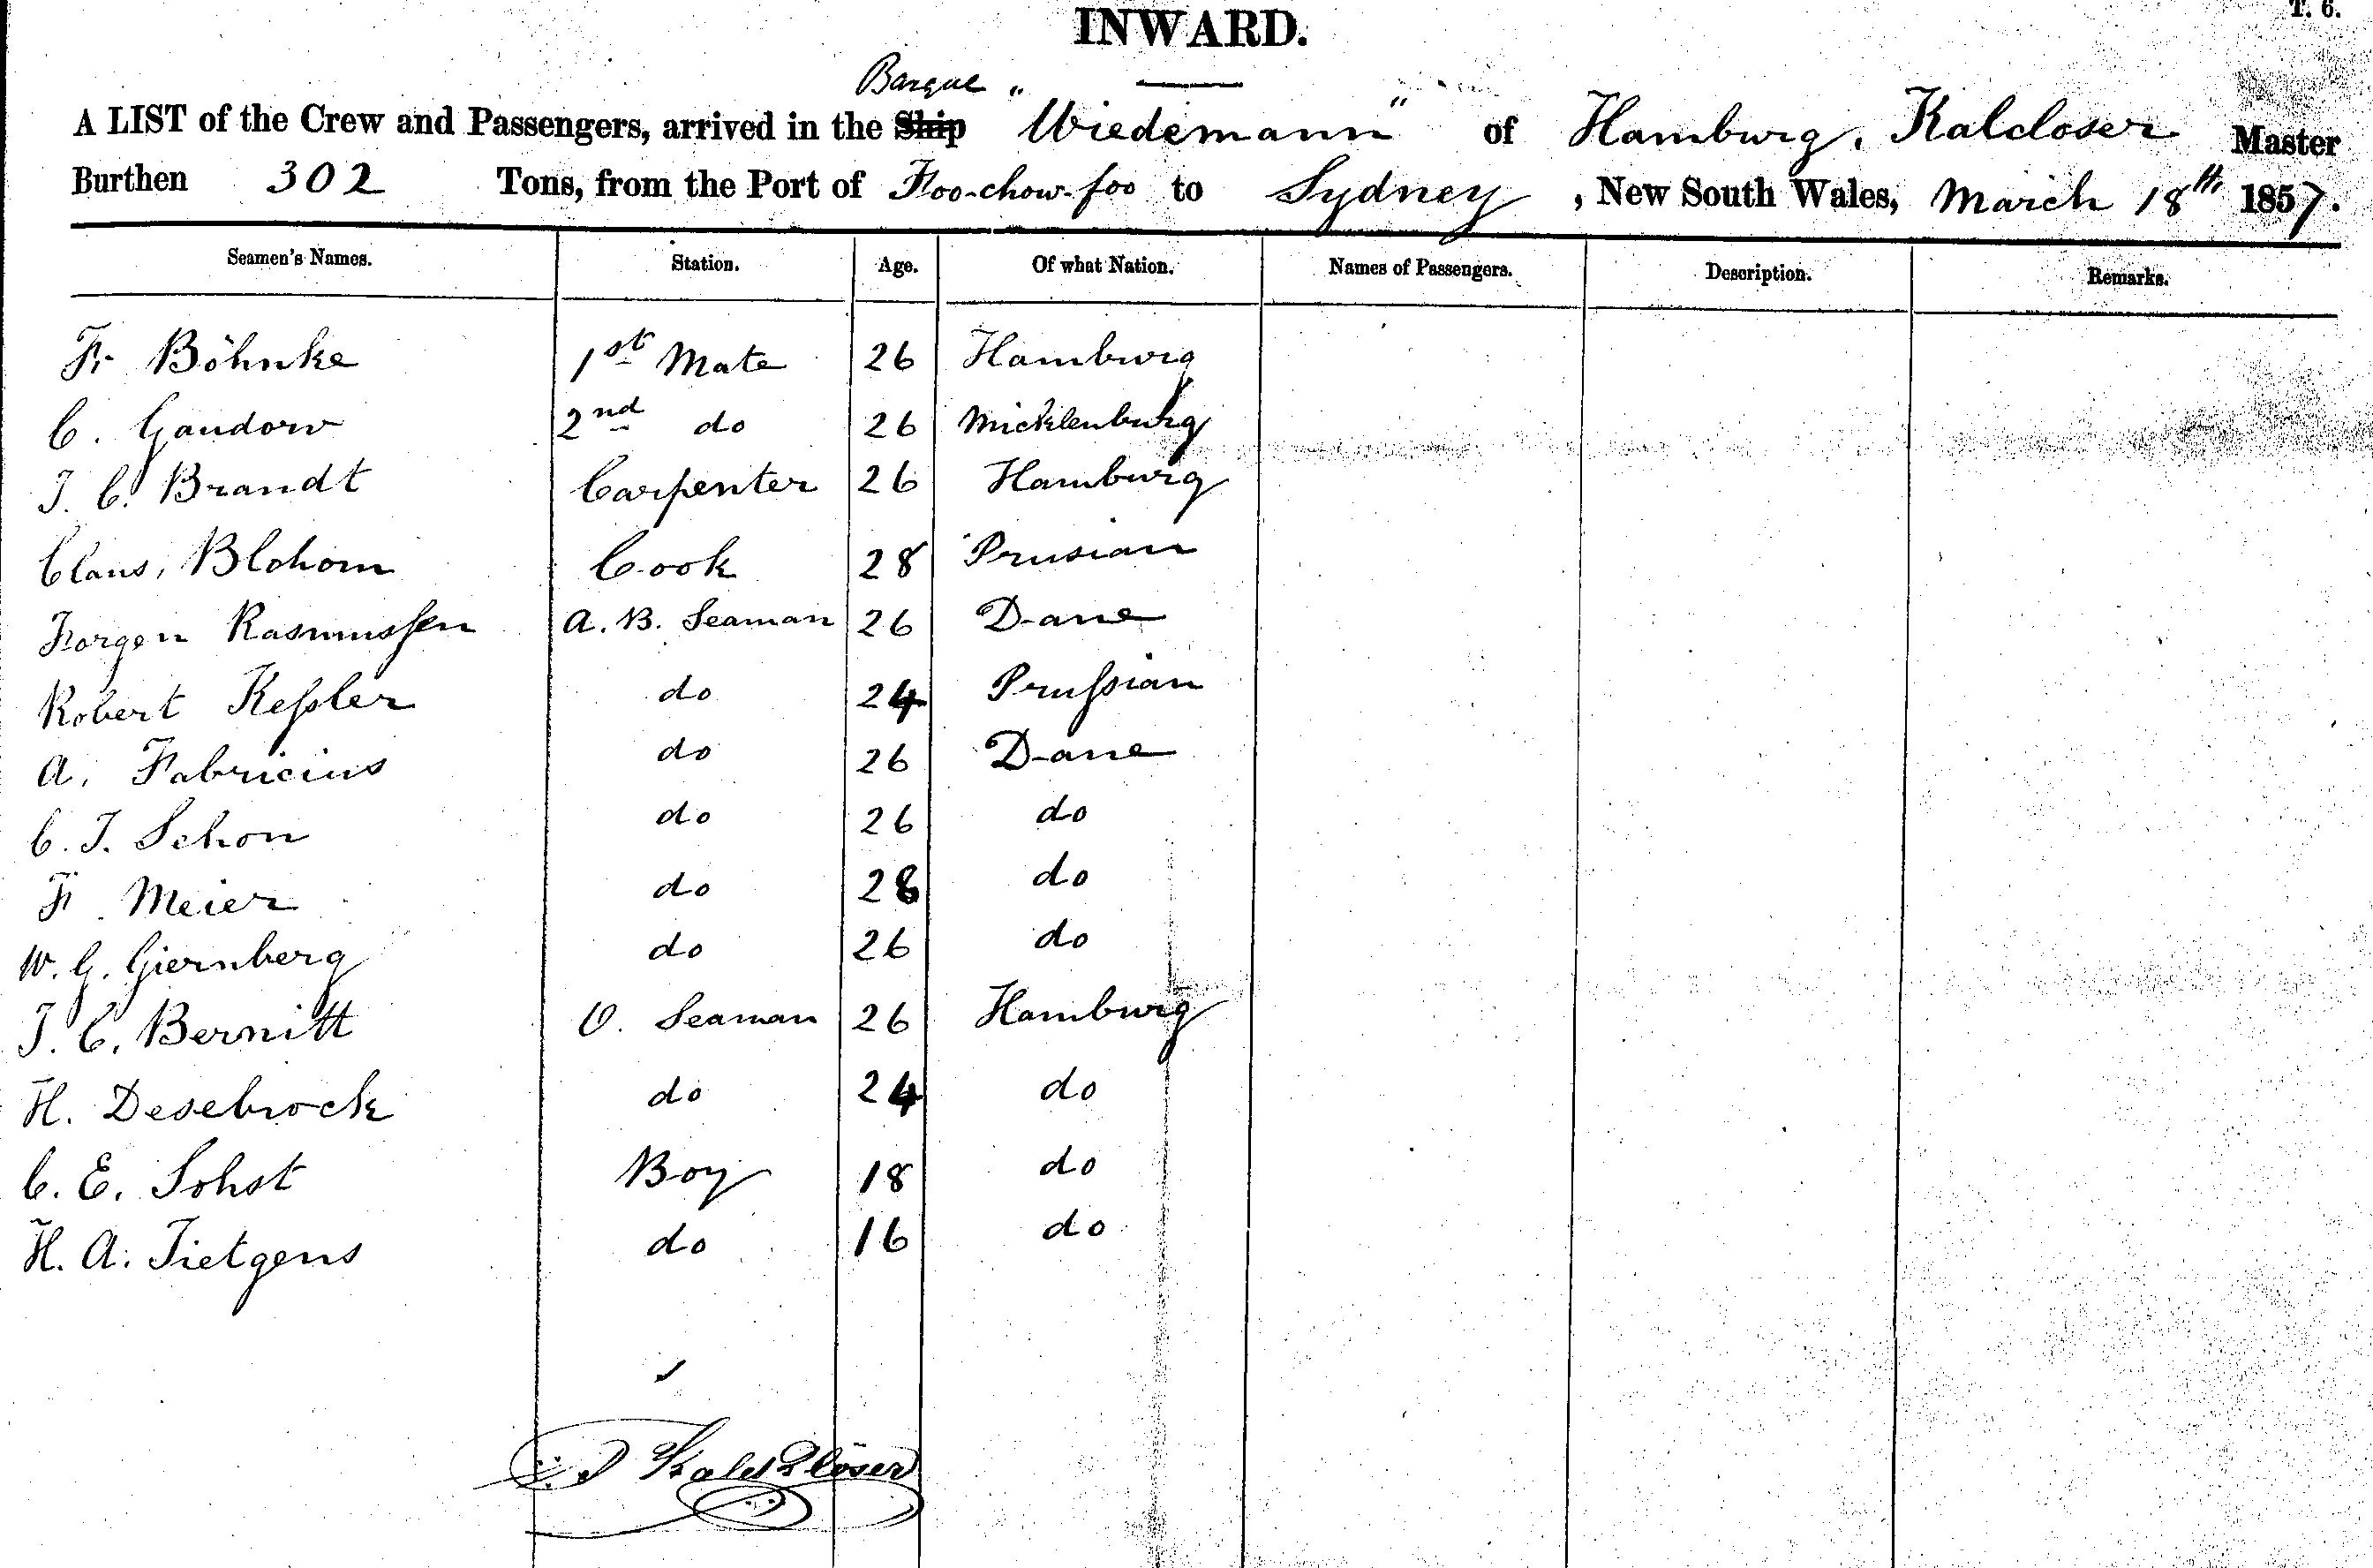 T. 6.
INWARD.
Barque
A LIST of the Crew and Passengers, arrived in the Ship "Wiedemann" of Hamburg, Kalcloser Master
Burthen 302 Tons, from the Port of Foo-chow-foo to Sydney, New South Wales, March 18th 1857.
Seamen's Names. Station. Age. Of what Nation. Names of Passengers. Description. Remarks.
Fr Böhnke 1st Mate 26 Hamburg
C. Gaudorw 2nd do 26 Micklenburg
J. C. Brandt Carpenter 26 Hamburg
Claus, Blohom Cook 28 Prusian
Jorgen Rasmussen A. B. Seaman 26 Dane
Robert Kessler do 24 Prussian
A. Fabricius do 26 Dane
C. J. Schon do 26 do
F. Meier do 28 do
W. G. Giernberg do 26 do
J. C. Bernitt O. Seaman 26 Hamburg
H. Desebrock do 24 do
C. E. Sohst Boy 18 do
H. A. Tietgens do 16 do